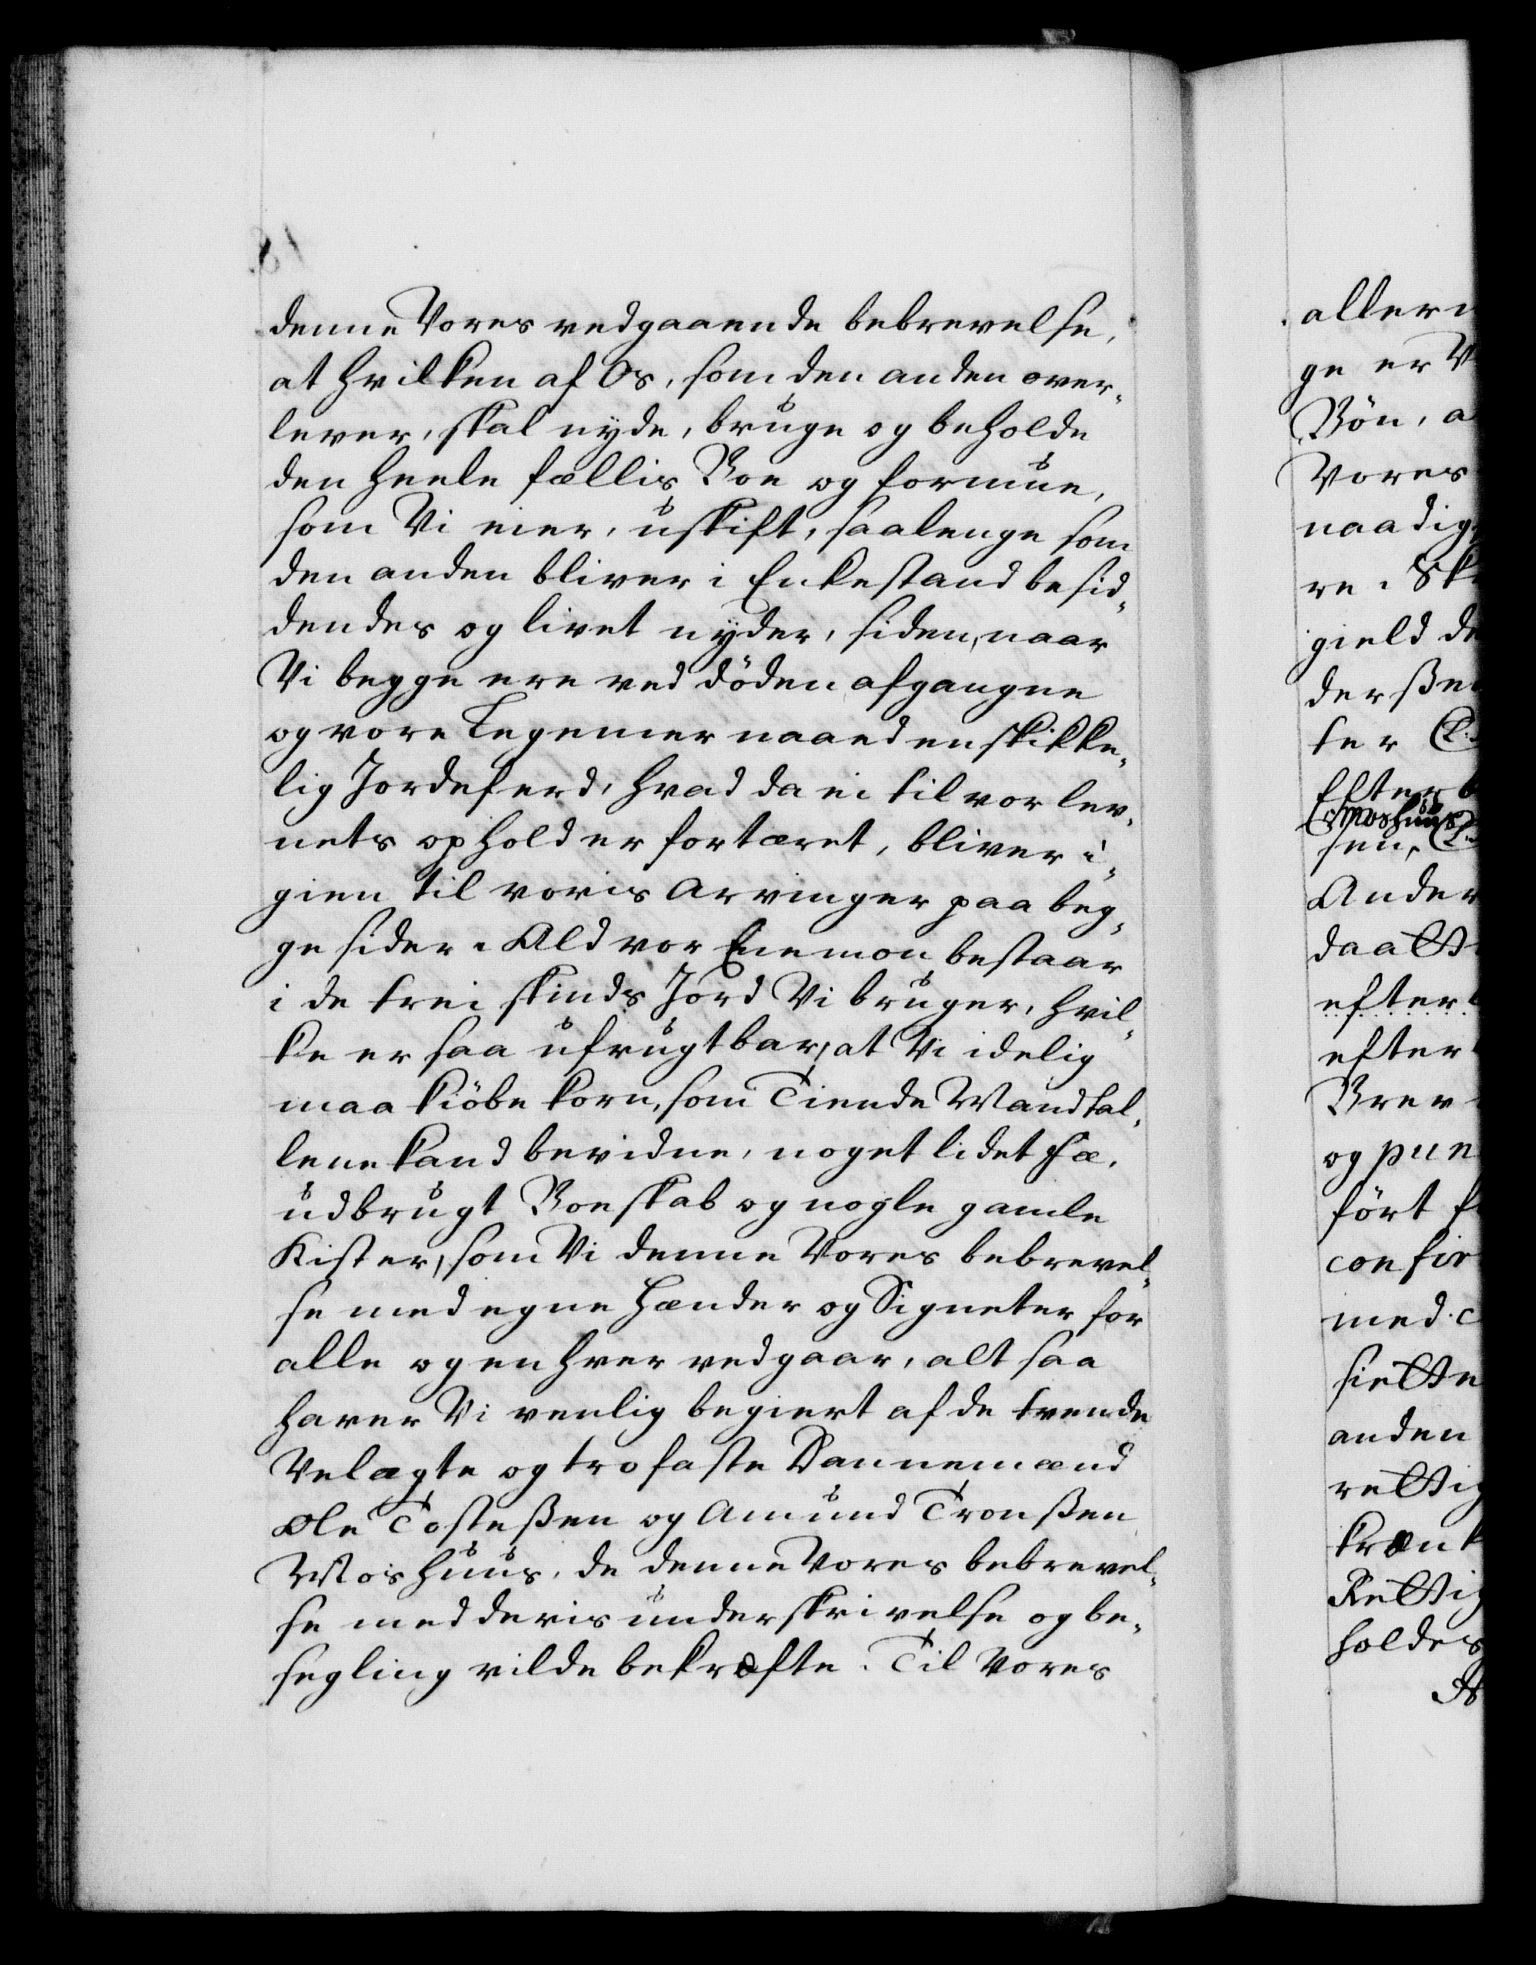 denne Vores vedgaaende bebrevelse,
at hvilken af Os, som den anden over-
lever, skal nyde, bruge og beholde
den heele fællis Boe og formue,
som Vi eier, uskift, saalenge som
den anden bliver i Enkestand besid-
dendes og livet nyder, siden, naar
Vi begge ere ved döden afgangne
og vore Legemer naaed en skikke-
lig Jordeferd, hvad da ei til vor lev-
nets ophold er fortæret, bliver i-
gien til voris Arvinger paa beg-
ge sider. Ald vor Enemon bestaar
i de trei skinds Jord Vi bruger, hvil-
ke er saa ufrugtbar, at Vi idelig
maa kiöbe korn, som Tiende Mandtal-
lene kand bevidne, noget lidet Fæ,
udbrugt Boeskab og nogle gamle
Kister, som Vi denne Vores bebrevel-
se med egne Hænder og Signeter for
alle og enhver vedgaar, alt saa
haver Vi venlig begiert af de tvende
Velagte og trofaste Dannemænd
Ole Tosteßen og Amund Tronßen
Moshuus, de denne Vores bebrevel-
se med deris underskrivelse og be-
segling vilde bekræfte. Til Vores
allern
ge er V
Bön, a
Vores
naadig
re. Sk
gield de
derßen
ter
Efter
Moshuus
sen,
Ander
daatt
efter
efter
Brev
og pun
fört f
confir
med. c
siette
anden
rettig
krænk
Rettig
holdes